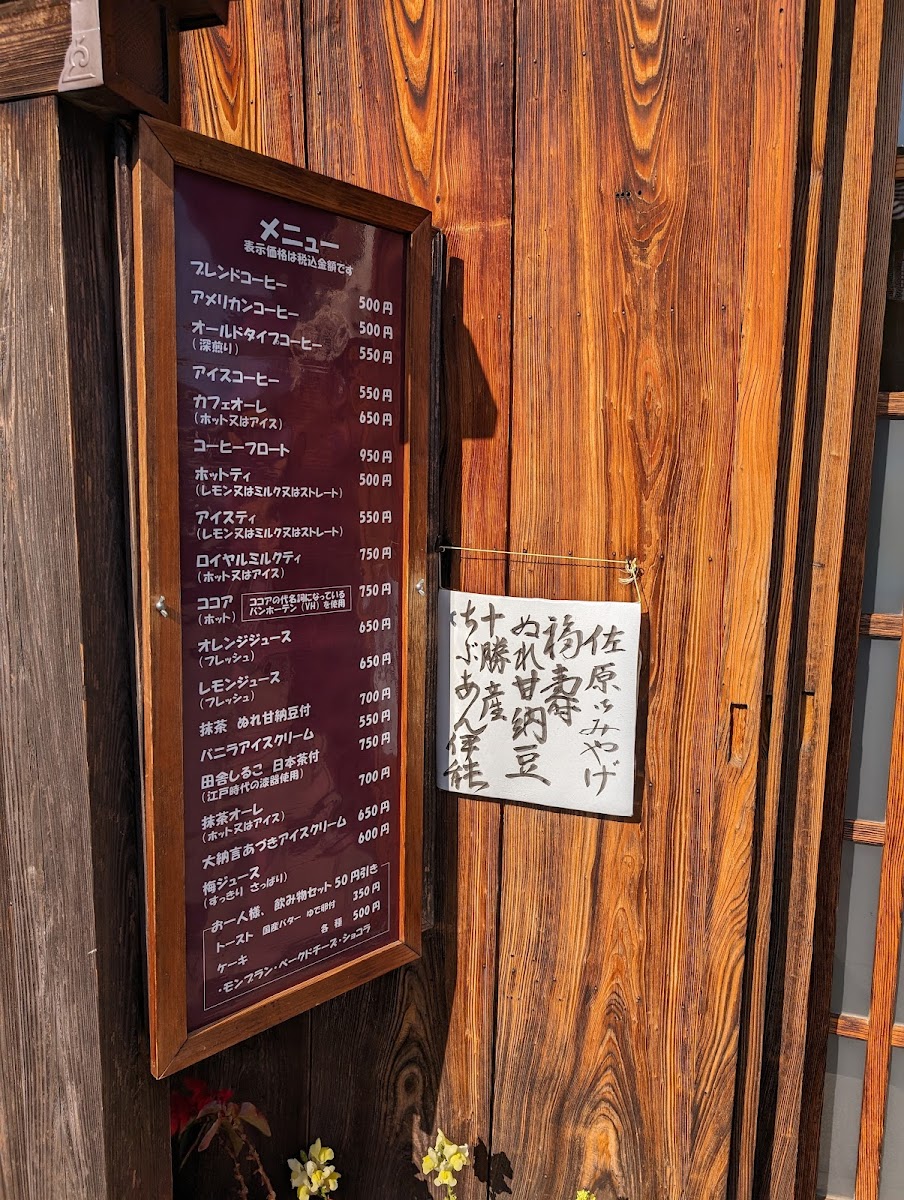 メニュー
表示価格は税込金額です
ブレンドコーヒー 500円
アメリカンコーヒー 500円
オールドタイプコーヒー 550円
(深煎り)
アイスコーヒー 550円
カフェオーレ 650円
(ホット又はアイス)
コーヒーフロート 950円
ホットティ 500円
(レモン又はミルク又はストレート)
アイスティ 550円
(レモン又はミルク又はストレート)
ロイヤルミルクティ 750円
(ホット又はアイス)
ココア 750円
(ホット)
ココアの代名詞になっている
バンホーテン(VH)を使用
オレンジジュース 650円
(フレッシュ)
レモンジュース 650円
(フレッシュ)
抹茶 ぬれ甘納豆付 700円
バニラアイスクリーム 550円
田舎しるこ 日本茶付 750円
(江戸時代の漆器使用)
抹茶オーレ 700円
(ホット又はアイス)
大納言あづきアイスクリーム 650円
梅ジュース 600円
(すっきり さっぱり)
お一人様、飲み物セット50円引き
トースト 国産バター ゆで卵付 350円
ケーキ 各種 500円
・モンブラン・ベークドチーズ・ショコラ
佐原みやげ
福寿
ぬれ甘納豆
十勝産
ちぶあん伊能